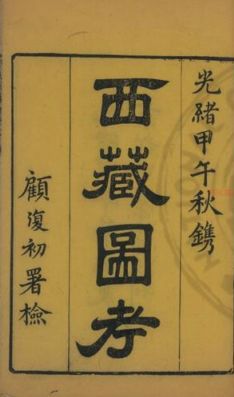 光緒甲午秋鐫
西藏圖考
顧復初署檢